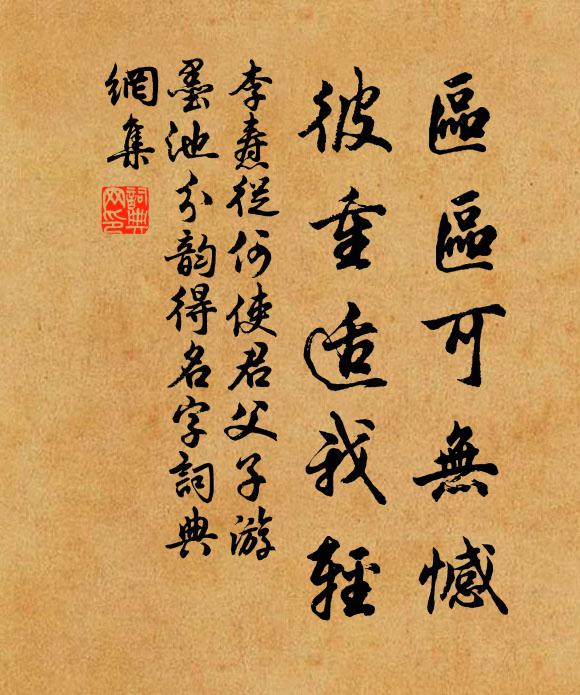 區區可無憾
彼重适我輕
李燾從何使君父子游
墨池分韵得名字詞典
網集
詞典網印